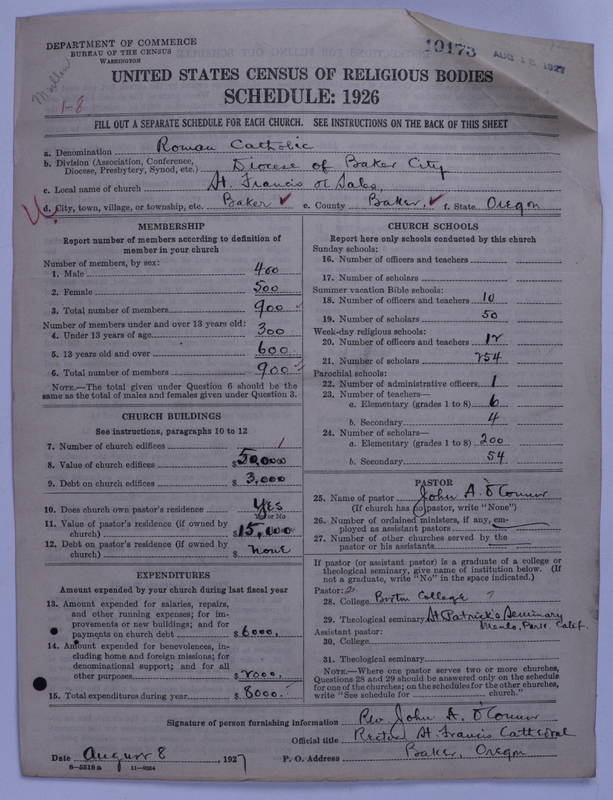 DEPARTMENT OF COMMERCE
BUREAU OF THE CENSUS
WASHINGTON
19173
AUG 1927
1-8
UNITED STATES CENSUS OF RELIGIOUS BODIES
SCHEDULE: 1926
FILL OUT A SEPARATE SCHEDULE FOR EACH CHURCH. SEE INSTRUCTIONS ON THE BACK OF THIS SHEET
a. Denomination Roman Catholic
b. Division (Association, Conference, Diocese, Presbytery, Synod, etc.) Diocese of Baker City
c. Local name of church St. Francis de Sales,
d. City, town, village, or township, etc. Baker ✓ e. County Baker, ✓ f. State Oregon
MEMBERSHIP
Report number of members according to definition of
member in your church
Number of members, by sex:
1. Male 400
2. Female 500
3. Total number of members 900
Number of members under and over 13 years old:
4. Under 13 years of age 300
5. 13 years old and over 600
6. Total number of members 900
NOTE.—The total given under Question 6 should be the
same as the total of males and females given under Question 3.
CHURCH BUILDINGS
See instructions, paragraphs 10 to 12
7. Number of church edifices 1
8. Value of church edifices $ 50,000
9. Debt on church edifices $ 3,000
10. Does church own pastor's residence? Yes
Yes or No
11. Value of pastor's residence (if owned by
church) $ 15,000
12. Debt on pastor's residence (if owned by
church) $ none
EXPENDITURES
Amount expended by your church during last fiscal year
13. Amount expended for salaries, repairs,
and other running expenses; for im-
provements or new buildings; and for
payments on church debt $ 6000.
14. Amount expended for benevolences, in-
cluding home and foreign missions; for
denominational support; and for all
other purposes $ 2000.
15. Total expenditures during year $ 8000.
CHURCH SCHOOLS
Report here only schools conducted by this church
Sunday schools:
16. Number of officers and teachers
17. Number of scholars
Summer vacation Bible schools:
18. Number of officers and teachers 10
19. Number of scholars 50
Week-day religious schools:
20. Number of officers and teachers 12
21. Number of scholars 254
Parochial schools:
22. Number of administrative officers 1
23. Number of teachers—
a. Elementary (grades 1 to 8) 6
b. Secondary 4
24. Number of scholars—
a. Elementary (grades 1 to 8) 200
b. Secondary 54
PASTOR
25. Name of pastor John A. O'Connor
(If church has no pastor, write "None")
26. Number of ordained ministers, if any, em-
ployed as assistant pastors
27. Number of other churches served by the
pastor or his assistants
If pastor (or assistant pastor) is a graduate of a college or
theological seminary, give name of institution below. (If
not a graduate, write "No" in the space indicated.)
Pastor:
28. College Boston College ?
29. Theological seminary St. Patrick's Seminary
Menlo Park. Calif.
Assistant pastor:
30. College
31. Theological seminary
NOTE.—Where one pastor serves two or more churches,
Questions 28 and 29 should be answered only on the schedule
for one of the churches; on the schedules for the other churches,
write "See schedule for church."
Signature of person furnishing information Rev. John A. O'Connor
Official title Rector St. Francis Cathedral
Date August 8, 1927 P. O. Address Baker, Oregon